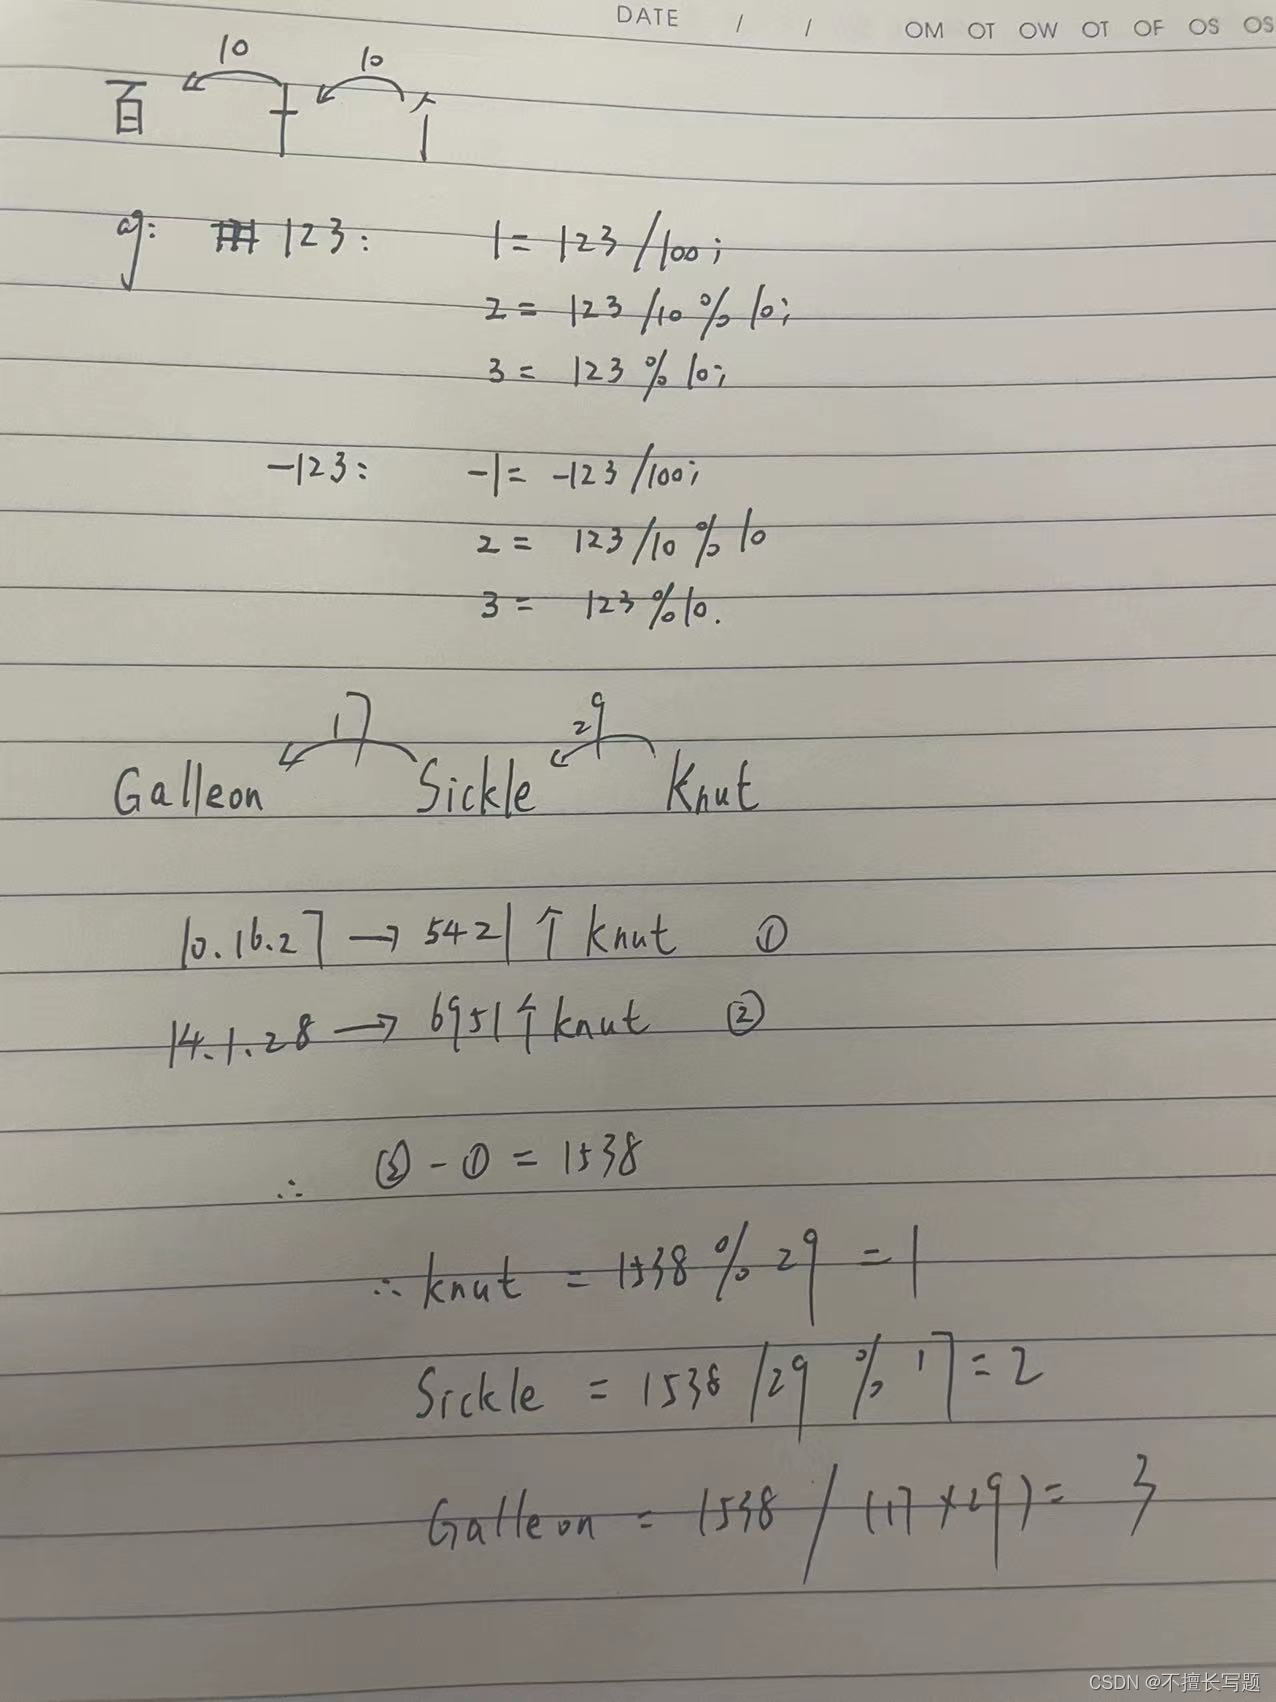 DATE / / OM OT OW OT OF OS OS
10 10
百 十 个
eg: 123: 1 = 123/100;
2 = 123/10%10;
3 = 123%10;
-123: -1 = -123/100;
2 = 123/10%10
3 = 123%10.
17 29
Galleon Sickle Knut
10.16.27 → 5421个 knut ①
14.1.28 → 6951个 knut ②
∴ ② - ① = 1538
∴ knut = 1538 % 29 = 1
Sickle = 1538 /29 % 17 = 2
Galleon = 1538 / (17×29) = 3
CSDN @不擅长写题